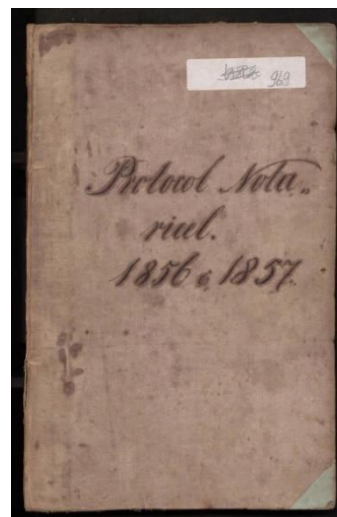 969
Protocol Nota„
riel.
1856 & 1857.